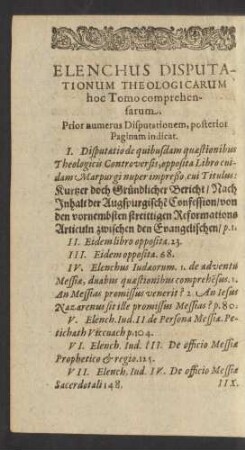 ELENCHUS DISPUTA-
TIONUM THEOLOGICARUM
hoc Tomo comprehen-
sarum.
Prior numerus Disputationem, posterior
Paginam indicat.
I. Disputatio de quibusdam quæstionibus
Theologicis Controversis, opposita Libro cui-
dam: Marpurgi nuper impresso, cui Titulus:
Kurtzer doch Gründlicher Bericht / Nach
Inhalt der Augspurgischē Confession / von
den vornembsten streittigen Reformations
Articuln zwischen den Evangelischen / p. 1.
II. Eidem libro opposita. 23.
III. Eidem opposita. 68.
IV. Elenchus Iudæorum. 1. de adventu
Messiæ, duabus quæstionibus comprehēsus. 1.
An Messias promissus venerit? 2. An Iesus
Nazarenus sit ille promissus Messias? p. 80.
V. Elench. Iud. II de Persona Messiæ. Pe-
tichath Viccuach p. 104.
VI. Elench. Iud. III. De officio Messiæ
Prophetico & regio. 125.
VII. Elench. Iud. IV. De officio Messiæ
Sacerdotali 148.
IIX.